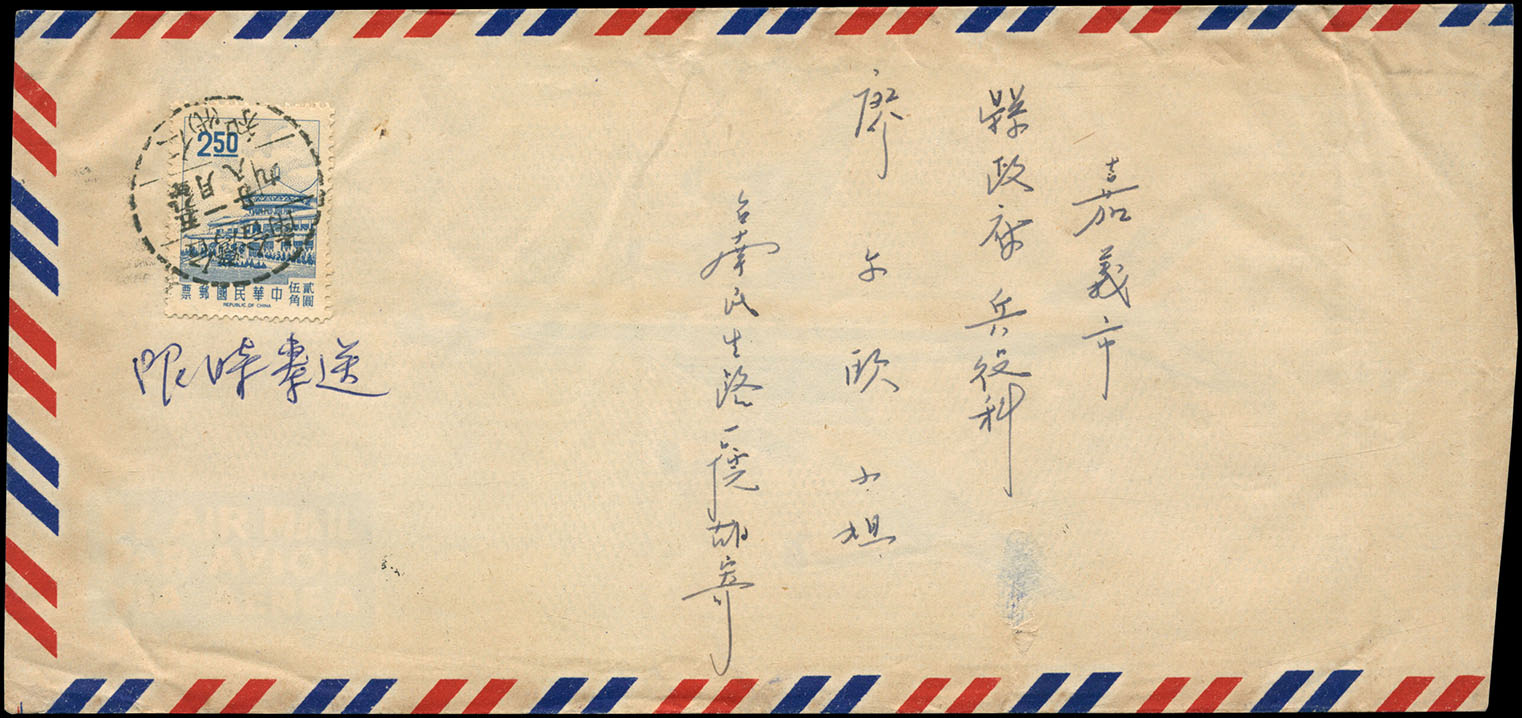 嘉義市
縣政府兵役科
廖 玉 欧 小姐
台南民生路一 胡寄
2.50
貳圓
伍角
票郵國民華中
REPUBLIC OF CHINA
限時專送